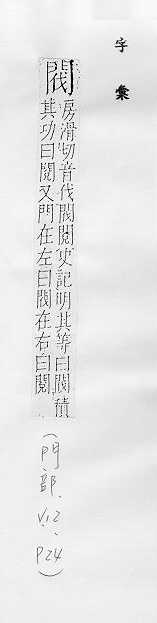 字彙
閥
房滑切音伐閥閱史記明其等曰閥積
其功曰閱又門在左曰閥在右曰閱
(門部.V.12.P24)